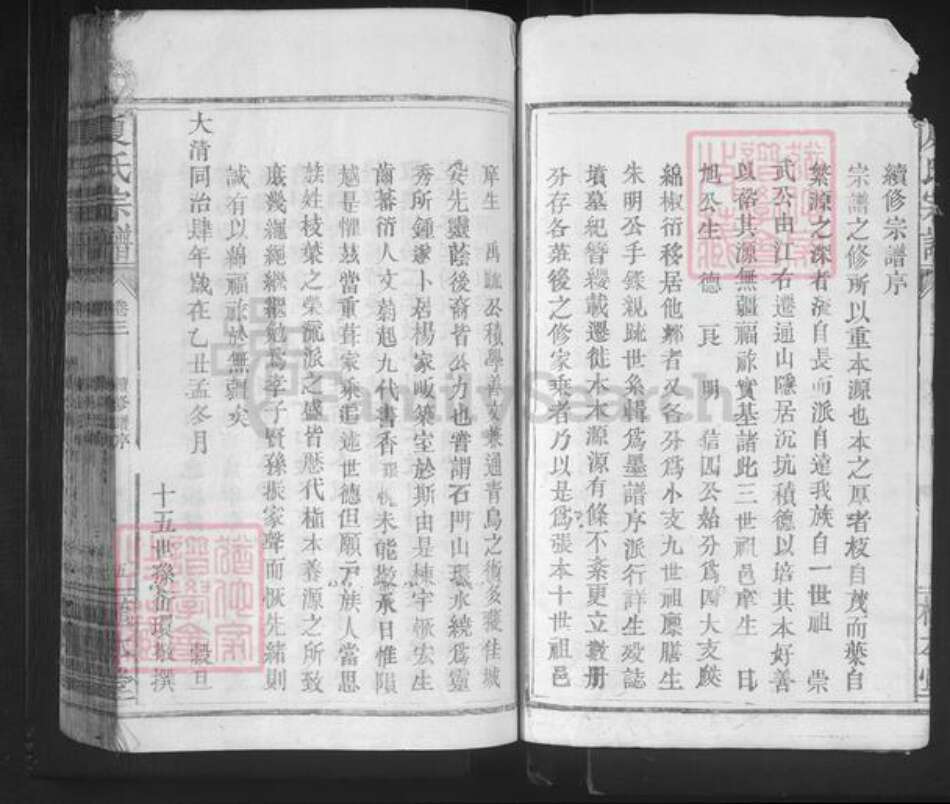 續修宗譜序
宗譜之修所以重本源也本之厚者枝自茂而葉自
繁源之深者流自長而派自遠我族自一世祖 崇
武公由江右遷通山隱居沉坑積德以培其本好善
以裕其源無疆福祚實基諸此三世祖邑庠生 日
旭公生 德 良 明 信四公始分爲四大支厥
綿椒衍移居他鄉者又各分爲小支九世祖廩膳生
朱明公手錄親疎世系輯爲墨譜序派行詳生歿誌
墳墓紀簪纓載遷徙水木源源有條不紊更立數册
分存各莊後之修家乘者乃以是爲張本十世祖邑
庠生 禹疏公積學善文兼通青烏之術多獲佳城
安先靈蔭後裔皆公力也嘗謂石門山環水繞爲靈
秀所鍾遂卜居楊家畈築室於斯由是棟宇恢宏生
齒蕃衍人文蔚起九代書香 未能數永日惟隕
越是懼茲當重葺家乘追述世德但願 族人當思
姓枝葉之榮流派之盛皆歷代植木養源之所致
庶幾繩繩繼繼勉爲孝子賢孫振家聲而恢先緒則
誠有以綿福祚於無疆矣
大清同治肆年歲在乙丑孟冬月 穀旦
十五世孫 環 撰
夏氏宗譜 卷三 續修宗譜序 五
FamilySearch